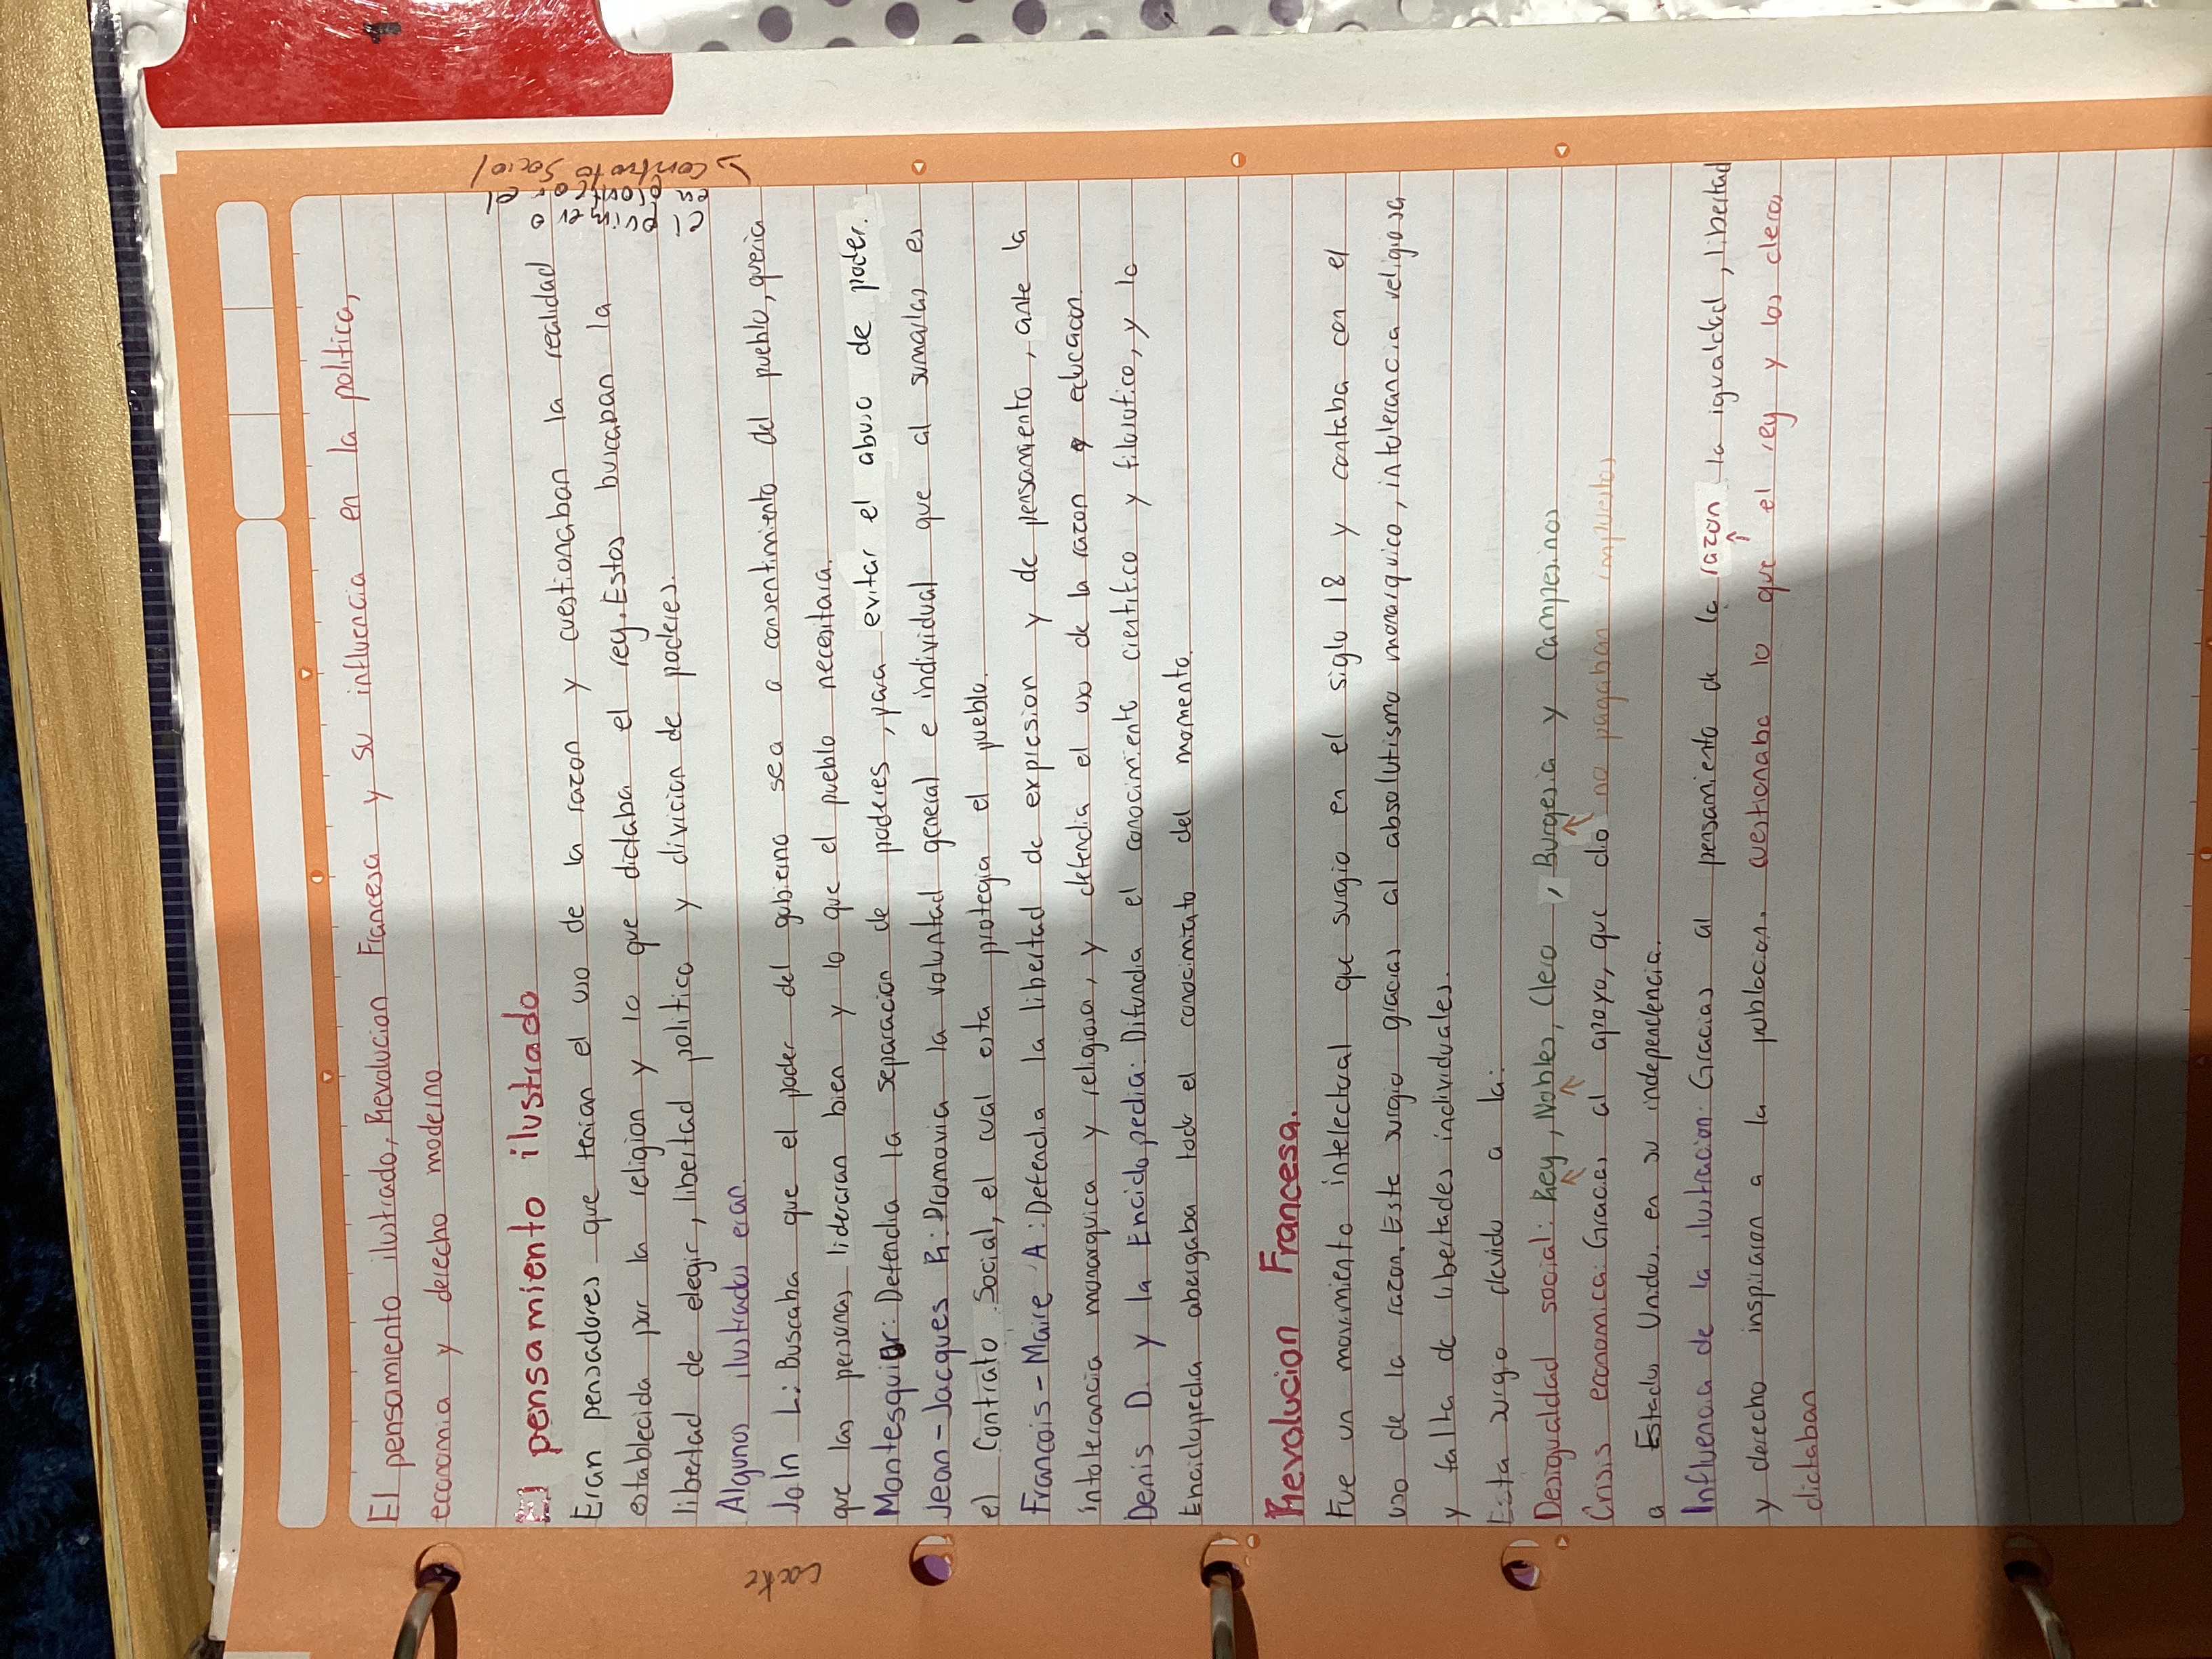 El pensamiento ilustrado, Revolucion Francesa y su influencia en la politica,
economia y derecho moderno
El pensamiento ilustrado
Eran pensadores que tenian el uso de la razon y cuestionaban la realidad
establecida por la religion y lo que dictaba el rey. Estos buscaban la
libertad de elegir, libertad politica y divicion de poderes.
Algunos ilustrados eran
John L: Buscaba que el poder del gobierno sea a consentimiento del pueblo, queria
que las personas lideraran bien y lo que el pueblo necesitara.
Montesquier: Defendia la separacion de poderes, para evitar el abuso de poder.
Jean-Jacques R: Promovia la voluntad general e individual que al sumarlas es
el Contrato Social, el cual esta protegia el pueblo.
Francois-Maire A: Defendia la libertad de expresion y de pensamiento, ante la
intolerancia monarquica y religiosa, y defendia el uso de la razon y educacion.
Denis D. y la Enciclopedia: Difundia el conocimiento cientifico y filosofico, y la
Enciclopedia abergaba todo el conocimiato del momento.
Revolucion Francesa.
Fue un movimiento intelectual que surgio en el siglo 18 y contaba con el
uso de la razon. Este surgio gracias al absolutismo monarquico, intolerancia religiosa
y falta de libertades individuales.
Esta surgio devido a la:
Desigualdad social: Rey, Nobles, Clero, Burgesia y Campesinos
Crisis economica: Gracias al apoyo, que dio no pagaban impuestos
a Estados Unidos en su independencia.
Influencia de la ilustracion: Gracias al pensamiento de la razon la igualdad, libertad
y derecho inspiraron a la poblacion. cuestionaba lo que el rey y los cleros
dictaban
el es
primero
a
el
→ contrato Social